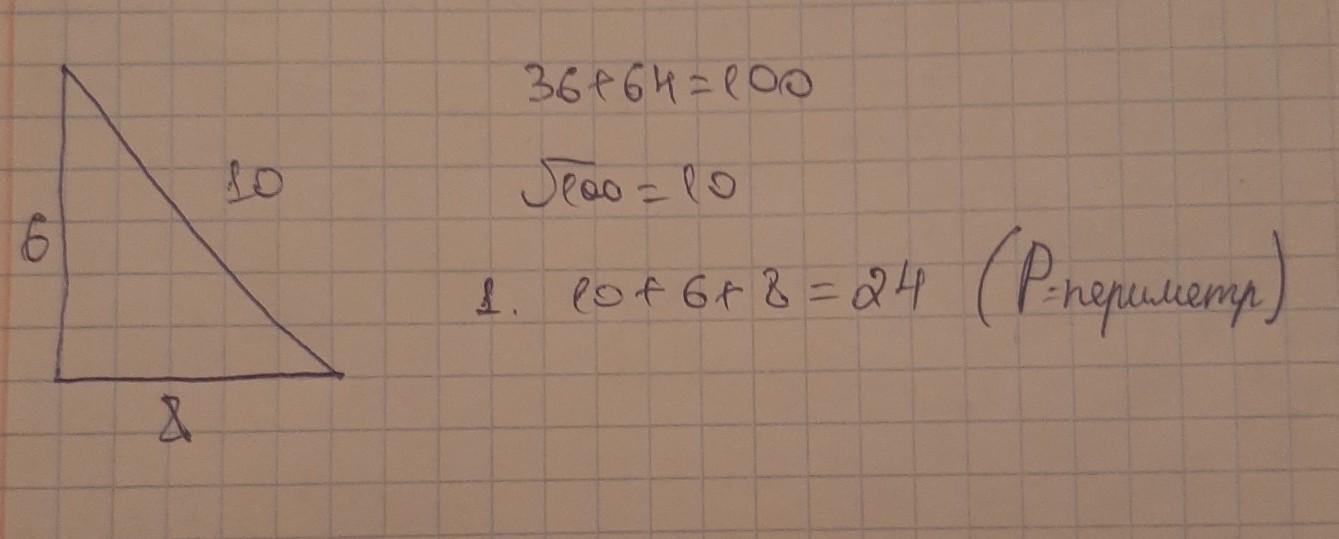 36+64=100
10
√100=10
6
1. 10+6+8=24 (P=периметр)
8